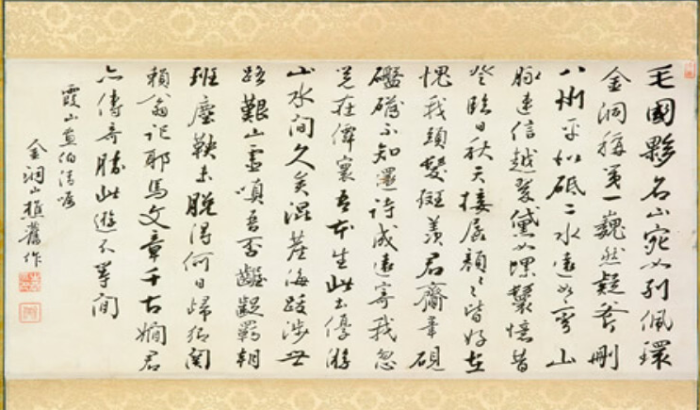 毛國夥名山宛如列佩環
金洞稱第一巍然疑斧刪
八州平如砥二水遠如彎山
脉連信越翠黛如螺鬟憶昔
登臨日秋天接展顏々皆好在
愧我頭髮斑羨君齎筆硯
礴不知還詩成遠寄我忽
覺在僊寰吾本生此土優游
山水間久矣混塵海跋涉世
路艱山靈嗔吾否齷齪羇朝
班塵鞅未脱得何日歸關
賴翁記耶馬文章千古嫺君
亦傳奇勝此遊不等閒
霞山画伯清囑
金洞山樵舊作